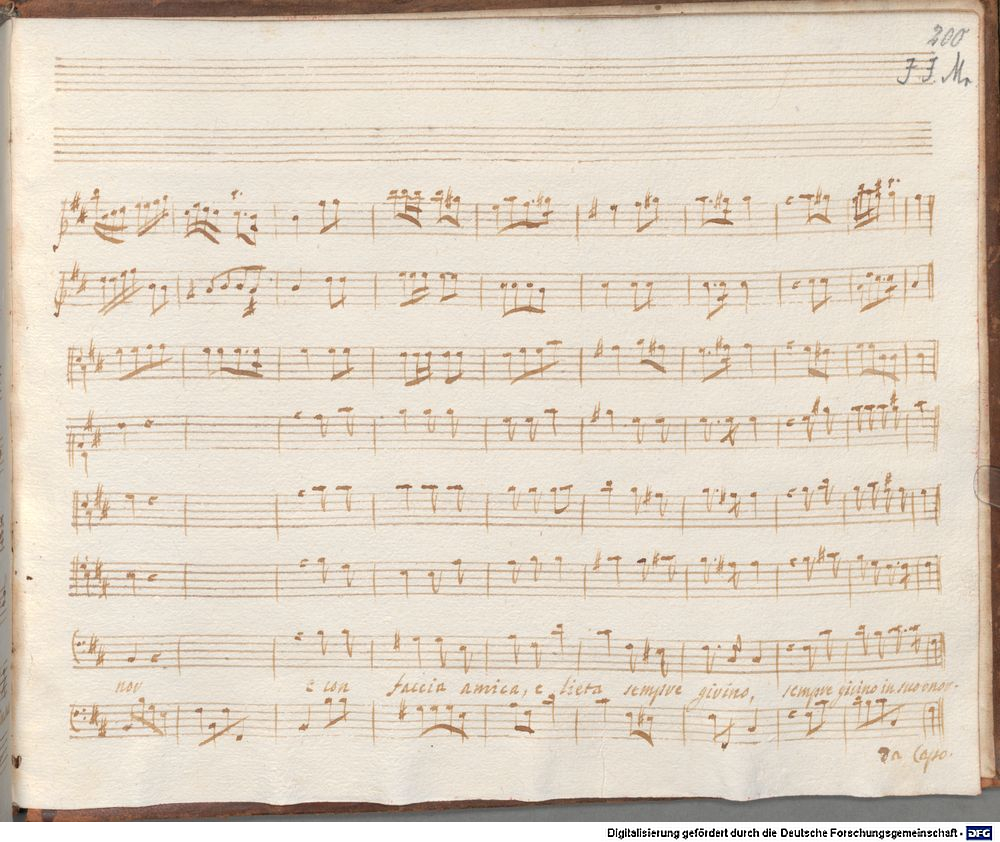 200
J. J. M.
nor e con faccia amica, e lieta sempre givino, sempre givino in suo onor.
Da Capo.
Digitalisierung gefördert durch die Deutsche Forschungsgemeinschaft - DFG